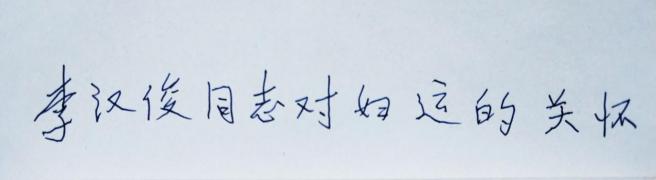 李汉俊同志对妇运的关怀